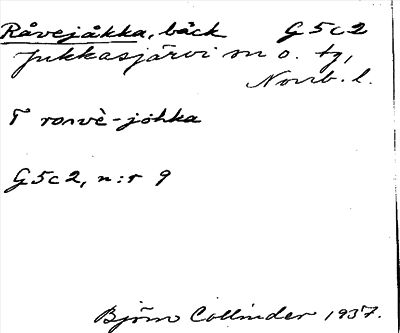 Råvejåkka, bäck G5c2
Jukkasjärvi sn o. tg,
Norrb. l.
F rovvè-johka
G5c2, n:r 9
Björn Collinder 1937.